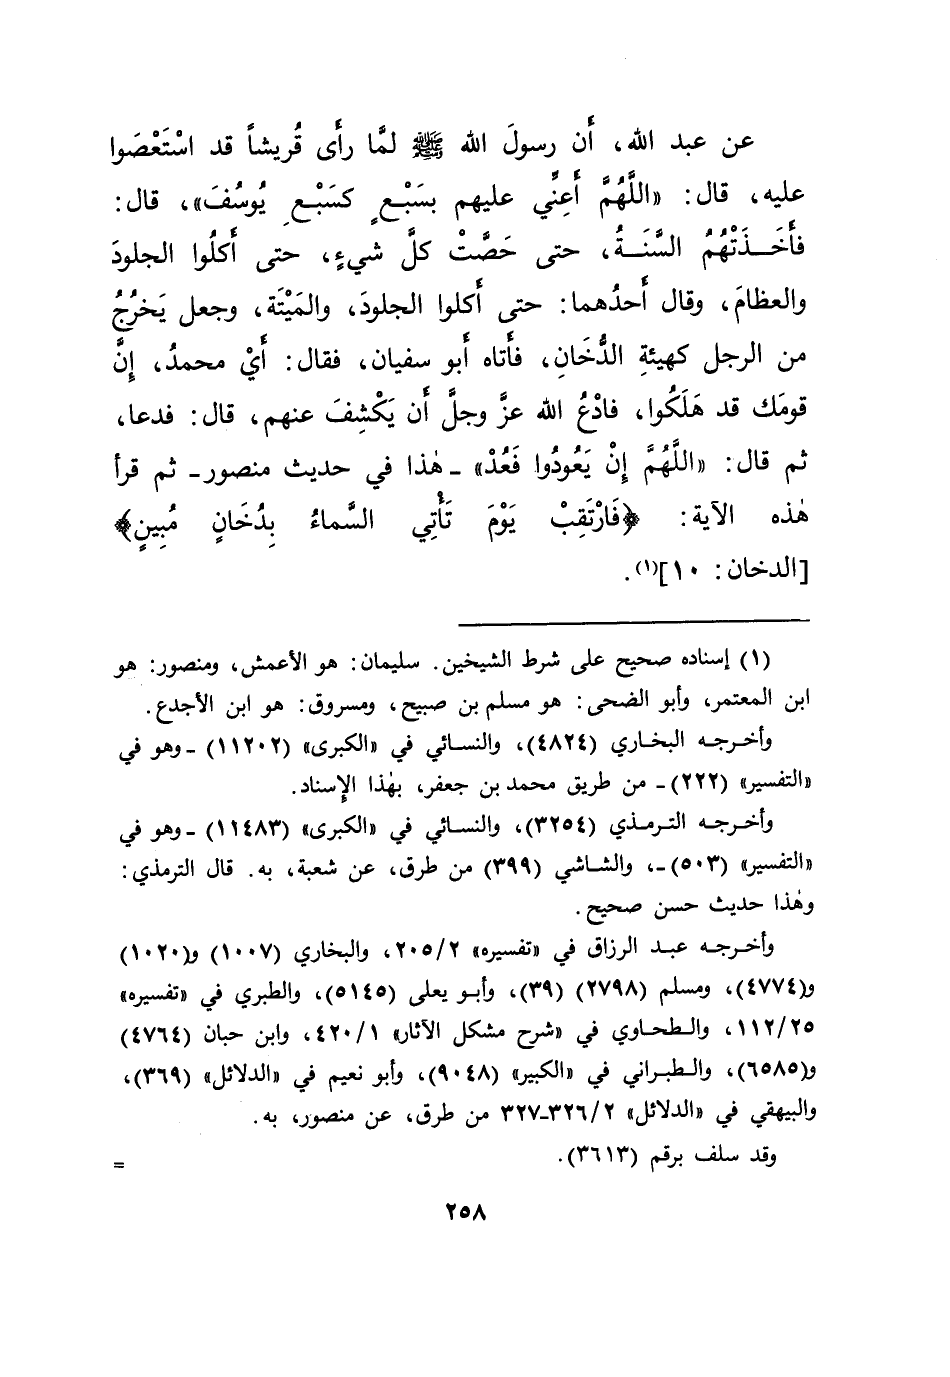 عن عبد الله، أَن رسولَ الله ﷺ لمَّا رأَى قُريشاً قد اسْتَعْصَوا
عليه، قال: «اللَّهُمَّ أَعِنِّي عليهم بسَبْعٍ كسَبْعِ يُوسُفَ»، قال:
فأَخَـذَتْهُمُ السَّنَـةُ، حتى حَصَّتْ كلَّ شيءٍ، حتى أَكلُوا الجلودَ
والعظامَ، وقال أَحدُهما: حتى أَكلوا الجلودَ، والمَيْتَة، وجعل يَخرُجُ
من الرجل كهيئةِ الدُّخَانِ، فأَتاه أَبو سفيان، فقال: أَيْ محمدُ، إِنَّ
قومَك قد هَلَكُوا، فادْعُ الله عزَّ وجلَّ أَن يَكْشِفَ عنهم، قال: فدعا،
ثم قال: «اللَّهُمَّ إِنْ يَعُودُوا فَعُدْ» ـ هٰذا في حديث منصور ـ ثم قرأ
هٰذه الآية: ﴿فَارْتَقِبْ يَوْمَ تَأْتِي السَّماءُ بِدُخَانٍ مُبِينٍ﴾
[الدخان: ١٠](١).
(١) إسناده صحيح على شرط الشيخين. سليمان: هو الأعمش، ومنصور: هو
ابن المعتمر، وأبو الضحى: هو مسلم بن صبيح، ومسروق: هو ابن الأجدع.
وأخـرجـه البخـاري (٤٨٢٤)، والنسـائي في «الكبرى» (١١٢٠٢) ـ وهو في
«التفسير» (٢٢٢) ـ من طريق محمد بن جعفر، بهٰذا الإِسناد.
وأخـرجـه التـرمـذي (٣٢٥٤)، والنسـائي في «الكبرى» (١١٤٨٣) ـ وهو في
«التفسير» (٥٠٣) ـ، والشـاشي (٣٩٩) من طرق، عن شعبة، به. قال الترمذي:
وهٰذا حديث حسن صحيح.
وأخـرجـه عبـد الرزاق في «تفسيره» ٢٠٥/٢، والبخاري (١٠٠٧) و(١٠٢٠)
و(٤٧٧٤)، ومسلم (٢٧٩٨) (٣٩)، وأبـو يعلى (٥١٤٥)، والطبري في «تفسيره»
١١٢/٢٥، والـطحـاوي في «شرح مشكل الآثار» ٤٢٠/١، وابن حبان (٤٧٦٤)
و(٦٥٨٥)، والـطبـراني في «الكبير» (٩٠٤٨)، وأبو نعيم في «الدلائل» (٣٦٩)،
والبيهقي في «الدلائل» ٣٢٦/٢ـ٣٢٧ من طرق، عن منصور، به.
وقد سلف برقم (٣٦١٣). =
٢٥٨